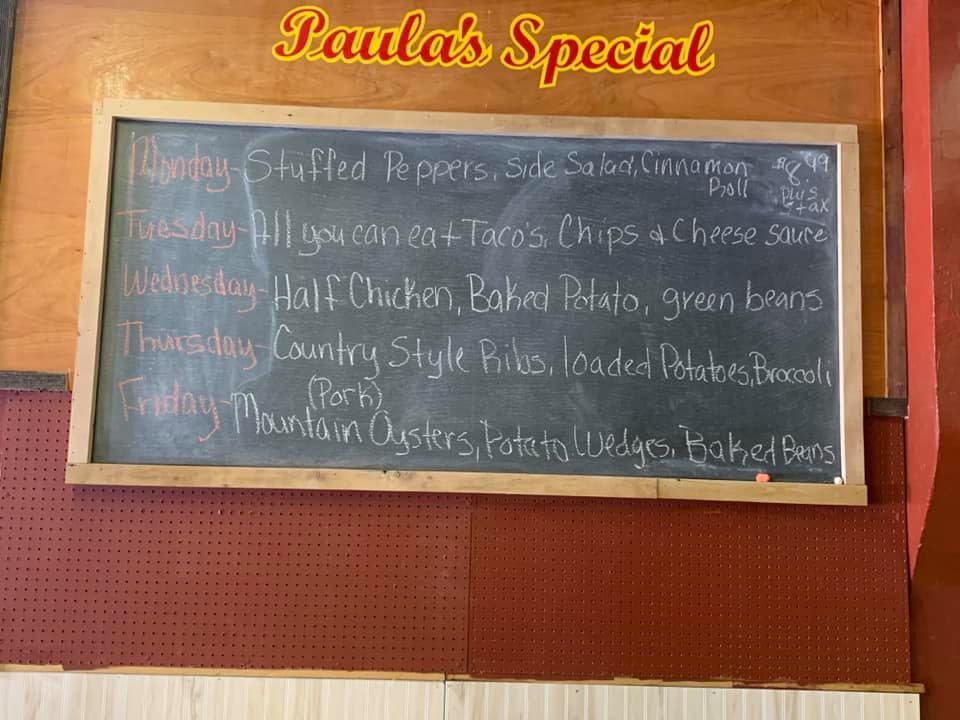 Paula's Special
Monday- Stuffed Peppers, side Salad, Cinnamon Roll
$8.49 plus tax
Tuesday- All you can eat Taco's, Chips & Cheese sauce
Wednesday- Half Chicken, Baked Potato, green beans
Thursday- Country Style Ribs, loaded Potatoes, Broccoli
(Pork)
Friday- Mountain Oysters, Potato Wedges, Baked Beans